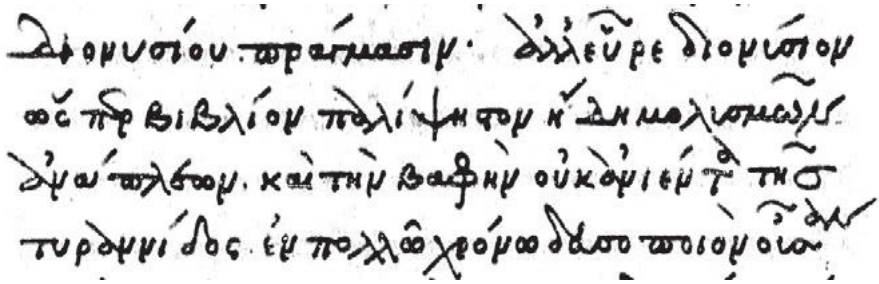 διονυσίου πράγμασιν· ἀλλεὗρε διονύσιον
ὥσπερ βιβλίον παλίψηστον ἤδη μολυσμῶν
ἀνάπλεων. καὶ τὴν βαφὴν οὐκ ἀνιέντα τῆς
τυραννίδος ἐν πολλῶ χρόνω δευσοποιὸν οὖσαν